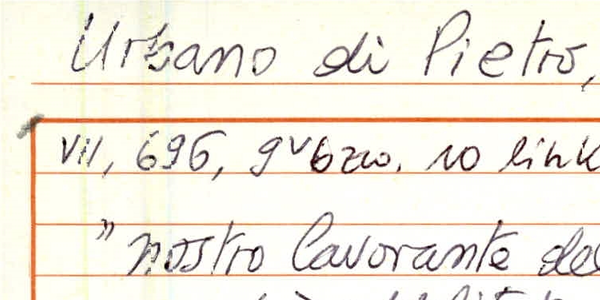 Urbano di Pietro,
VII, 696, 9v bzw. 10 link
" nostro lavorante del